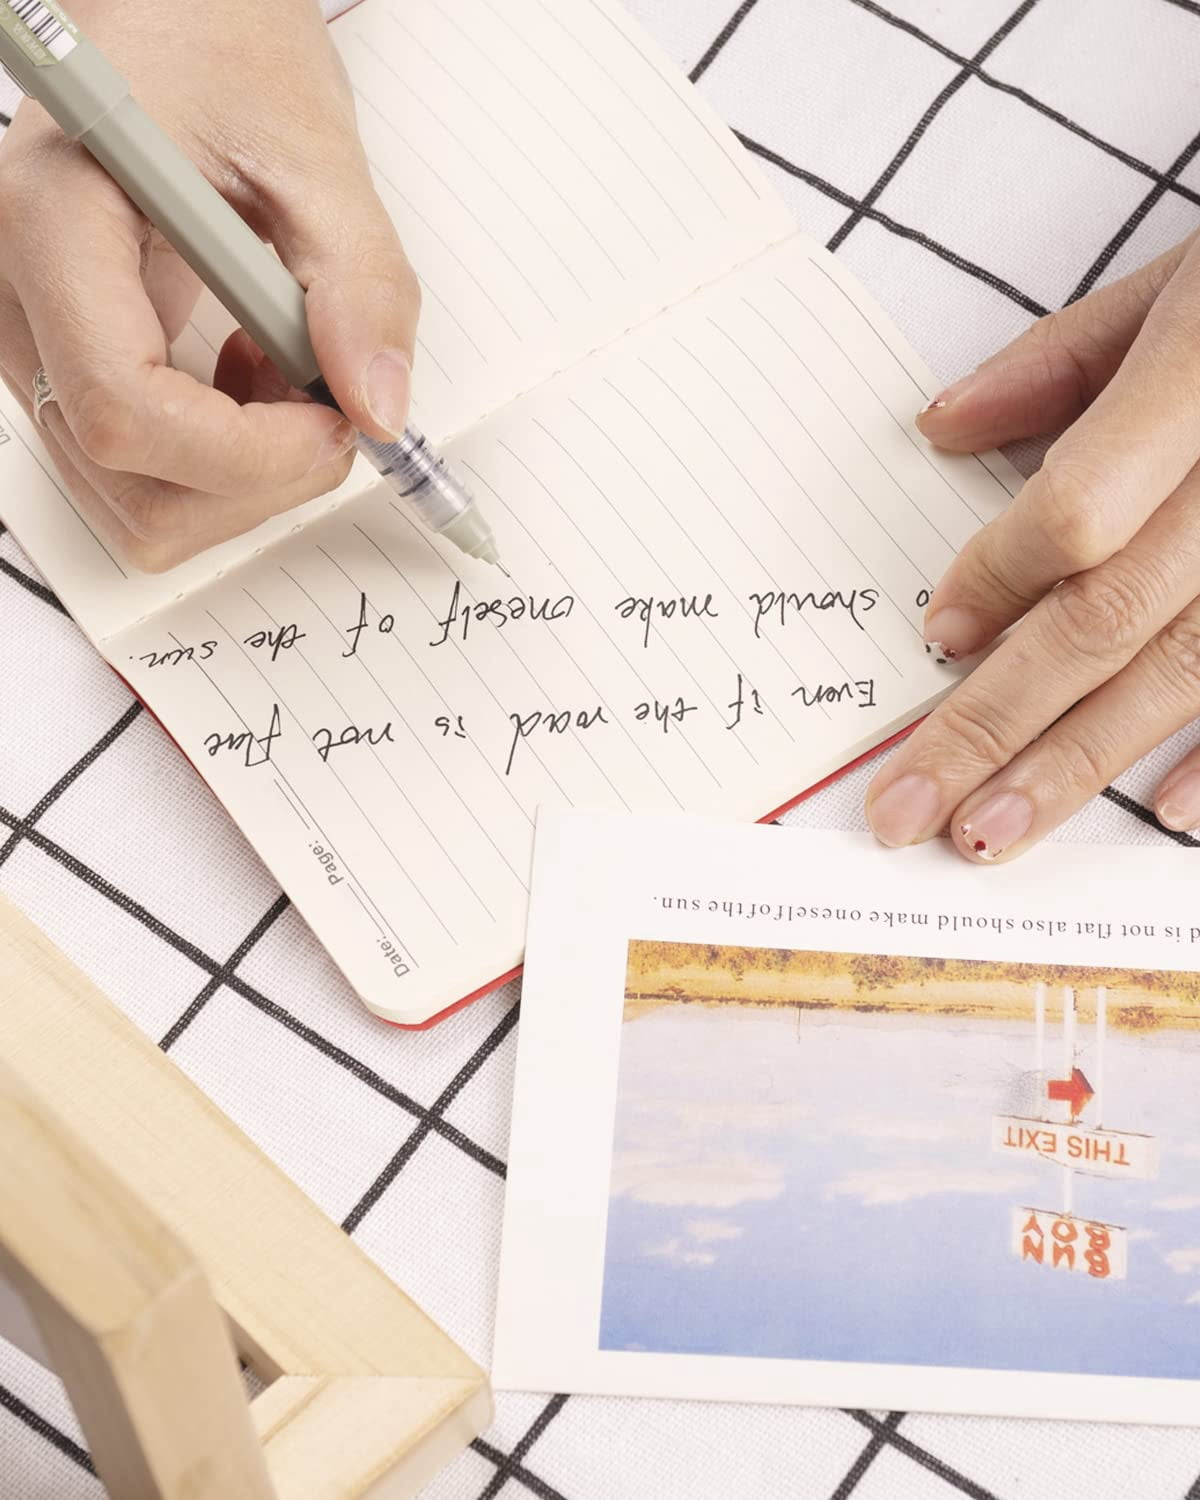 BUN
BOY
THIS EXIT
is not flat also should make oneself of the sun.
Date:
Page:
Even if the road is not flat
should make oneself of the sun.